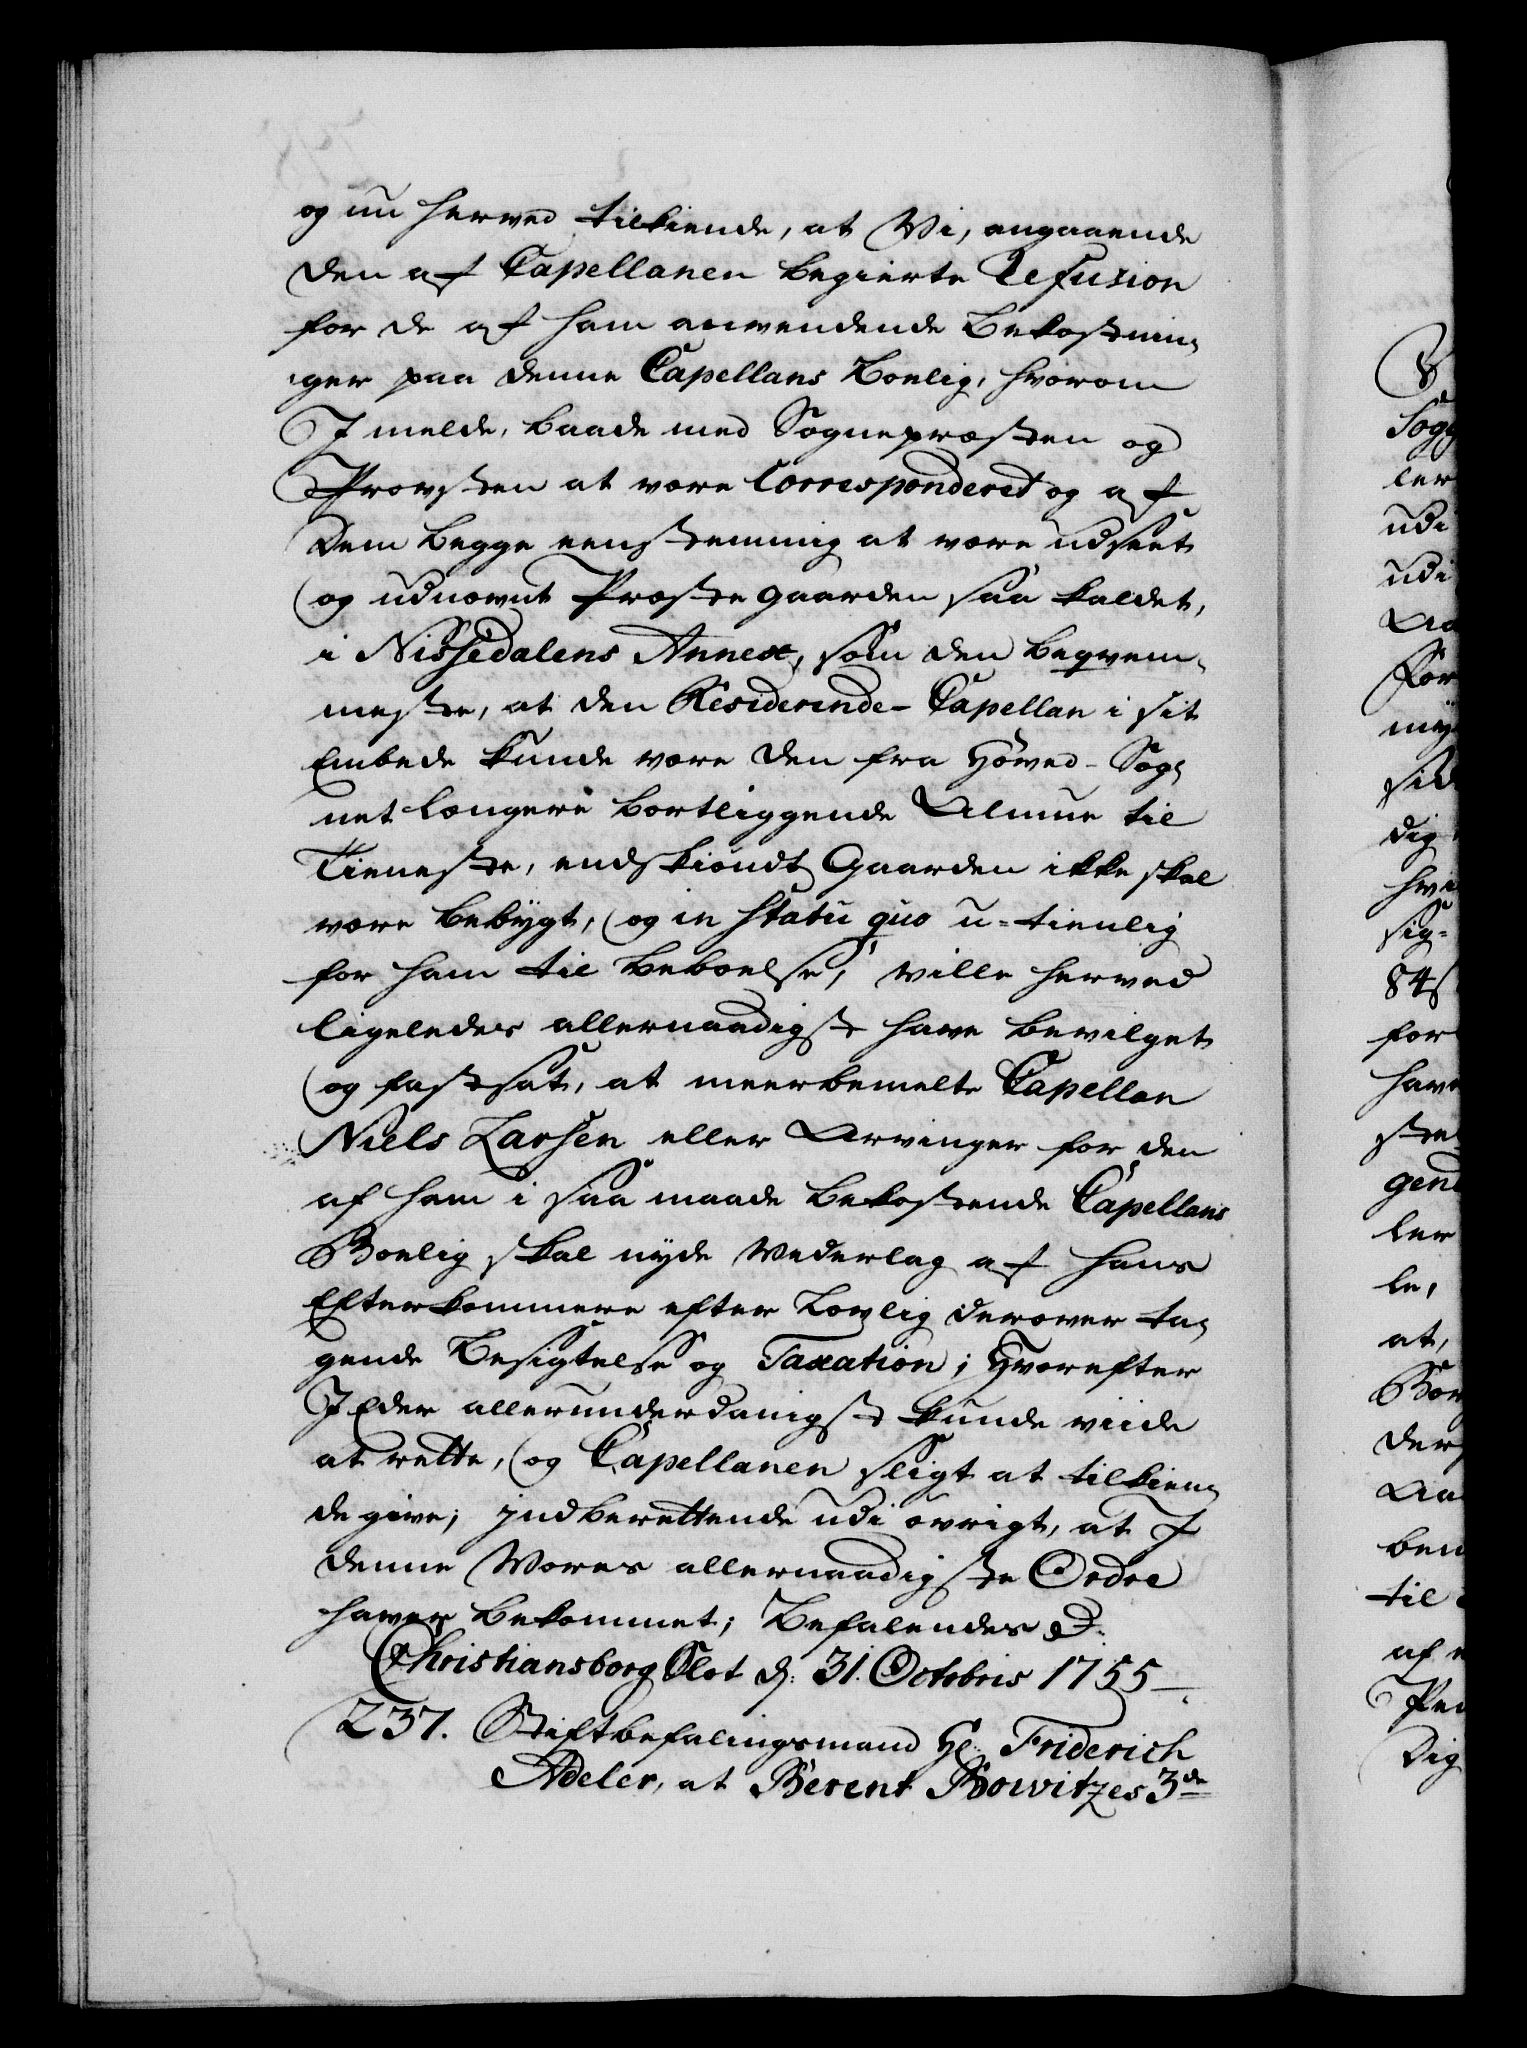 og nu herved tilkiende, at Vi, angaaende
den af Capellanen begierte Refusion
for de af ham anvendende Bekostnin-
ger paa denne Capellans Boelig, hvorom
I melde, baade med Sognepræsten og
Provsten at være Corresponderet og af
dem begge eenstemmig at være udseet
og udnævnt Præste Gaarden saa kaldet,
i Nissedalens Annex, som den beqvem-
meste, at den Residerende-Capellan i sit
Embede kunde være den fra Hoved-Sog-
net længere bortliggende Almue til
Tieneste, endskiøndt Gaarden ikke skal
være bebygt, og in statu quo u-tienlig
for ham til Beboelse, ville herved
ligeledes allernaadigst have bevilget
og fastsat, at meerbemelte Capellan
Niels Larsen eller Arvinger for den
af ham i saa maade bekostende Capellans
Boelig skal nyde Vederlag af hans
Efterkommere efter Lovlig derover ta-
gende Besigtelse og Taxation; Hvorefter
I Eder allerunderdanigst kunde viide
at rette, og Capellanen sligt at tilkien-
de give; jndberettende udi øvrigt, at I
denne Vores allernaadigste Ordre
haver bekommet; Befalendes &.
Christiansborg Slot d: 31. Octobris 1755
237. Stiftbefalingsmand Hr. Friderich
Adeler, at Berent Bowitzes 3de
Sogg
ler
udi
udi
Aa
For
sid
dig
hvi
sig-
84
for
hav
ste
gend
ler
le,
at,
der
Aa
ben
til
af
Ped
Dig